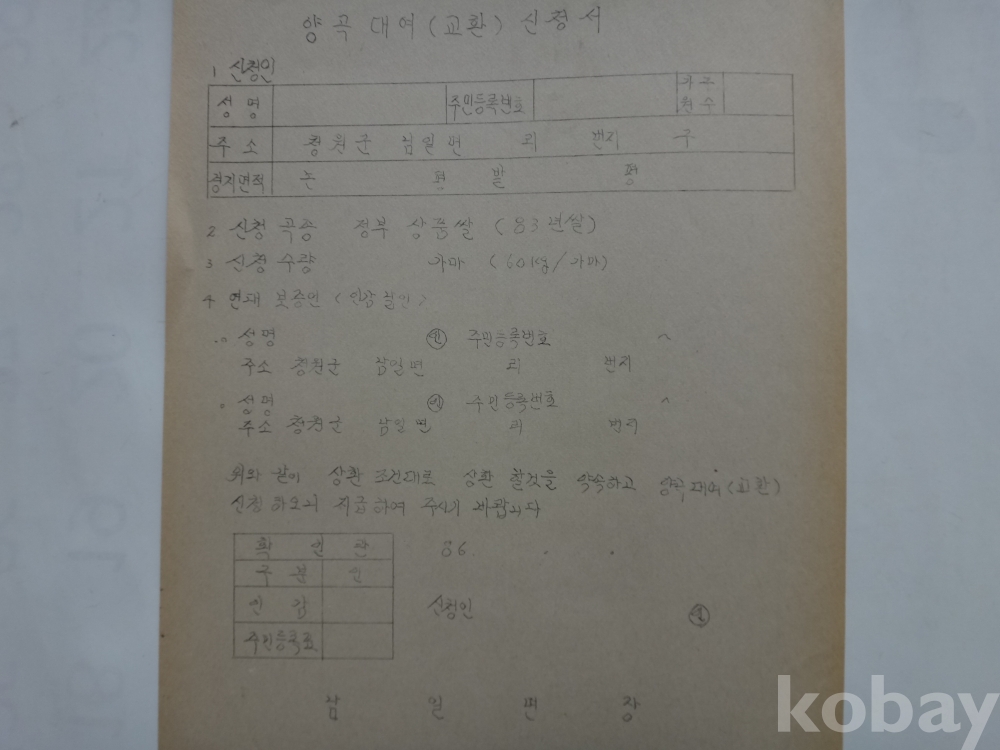 양곡 대여(교환) 신청서
1 신청인
성명 주민등록번호 가구원수
주소 청원군 남일면 리 번지 구
경지면적 논 평 밭 평
2 신청 곡종 정부 상품쌀 (83년쌀)
3 신청 수량 가마 (60kg/가마)
4 연대 보증인 (인감 날인)
성명 인 주민등록번호
주소 청원군 남일면 리 번지
성명 인 주민등록번호
주소 청원군 남일면 리 번지
위와 같이 상환 조건대로 상환 할것을 약속하고 양곡대여(교환)
신청 하오니 지급하여 주시기 바랍니다
확 인 란 86. . .
구분 인
인감 신청인 인
주민등록표
남 일 면 장
kobay